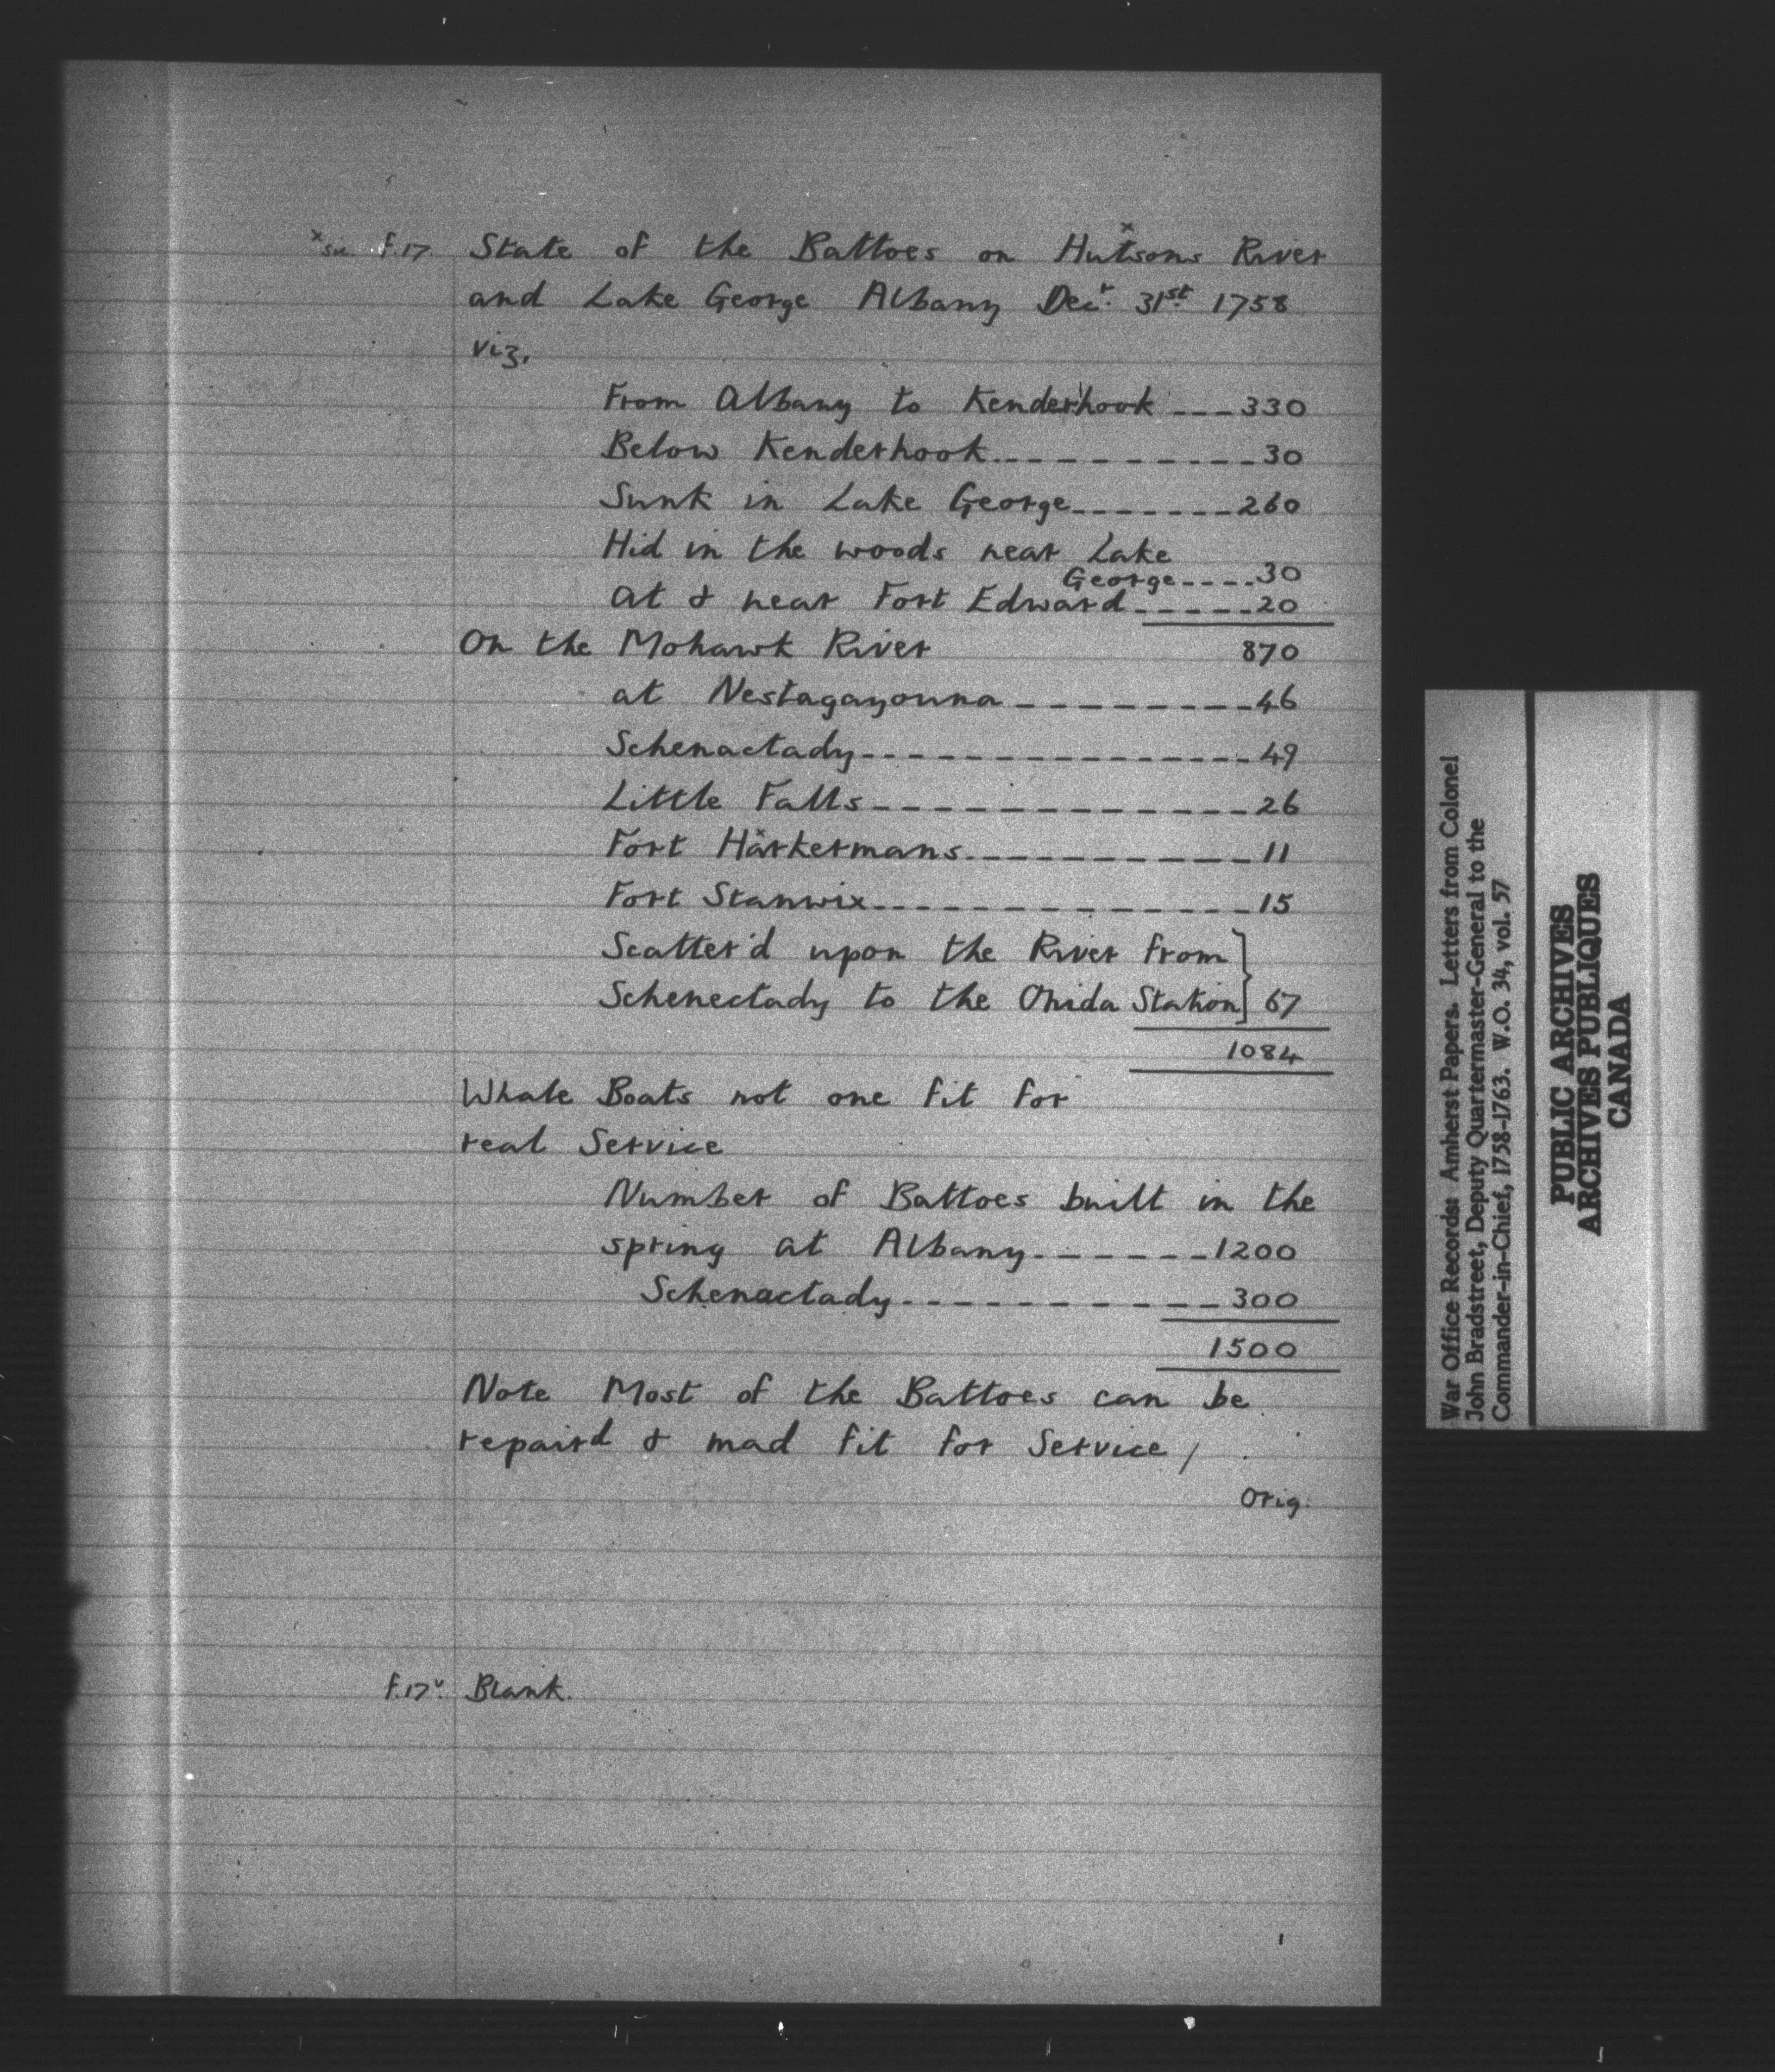 x sic f.17. State of the Battoes on Hutsons River
and Lake George Albany Decr. 31st 1758
viz,
From Albany to Kenderhook ---330
Below Kenderhook----------30
Sunk in Lake George-------260
Hid in the woods near Lake
George----30
at & near Fort Edward-----20
On the Mohawk River 870
at Nestagayouna---------46
Schenactady---------------49
Little Falls-------------26
Fort Harkermans----------11
Fort Stanwix-------------15
Scatter'd upon the River from
Schenectady to the Onida Station} 67
1084
Whale Boats not one fit for
real Service
Number of Battoes built in the
spring at Albany-------1200
Schenactady-----------300
1500
Note Most of the Battoes can be
repaird & mad fit for Service /
Orig.
f.17v. Blank.
War Office Records: Amherst Papers. Letters from Colonel
John Bradstreet, Deputy Quartermaster-General to the
Commander-in-Chief, 1758-1763. W.O. 34, vol. 57
PUBLIC ARCHIVES
ARCHIVES PUBLIQUES
CANADA